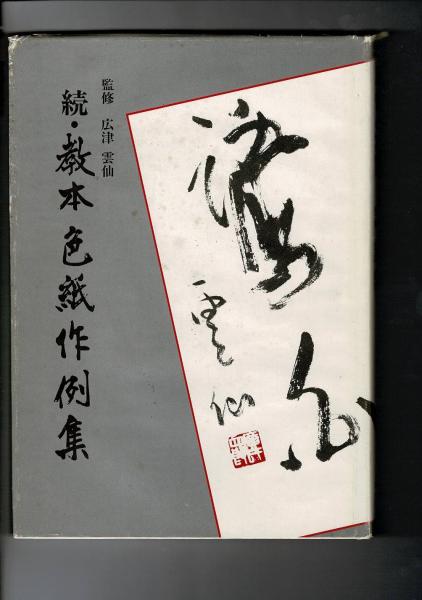 監修 広津 雲仙
続・教本色紙作例集
雲仙